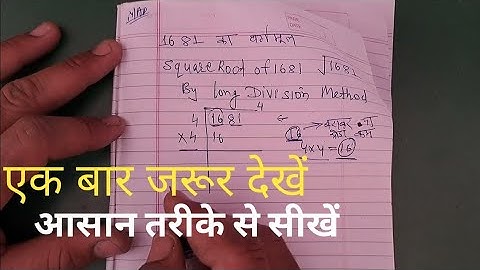 1681 का वर्गमूल
Square Root of 1681 √1681
By Long Division Method
4
4 1681
×4 16
16
4×4=16
एक बार जरूर देखें
आसान तरीके से सीखें